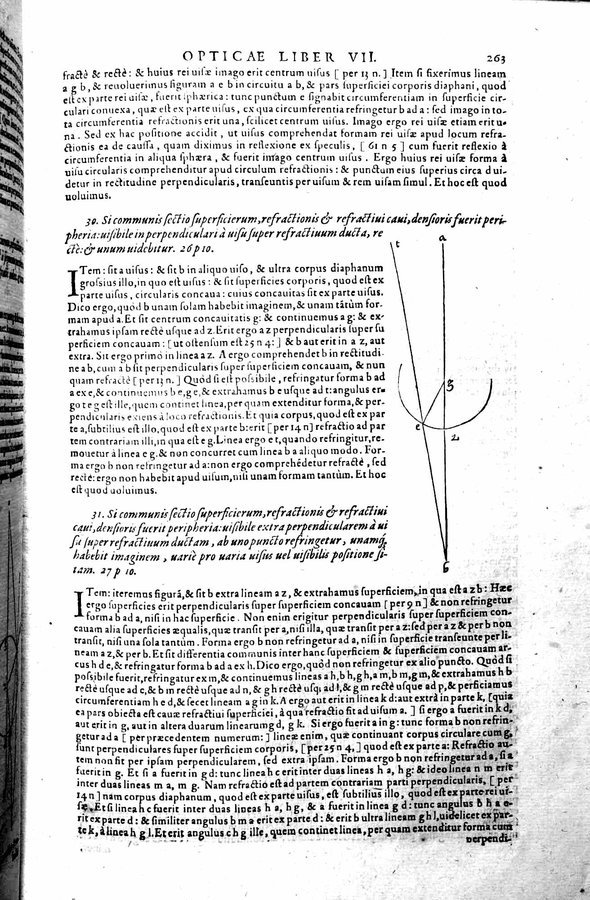 OPTICAE LIBER VII. 263
fractè & rectè: & huius rei uisæ imago erit centrum uisus [per 13 n.] Item si fixerimus lineam
a g b, & reuoluerimus figuram a e b in circuitu a b, & pars superficiei corporis diaphani, quod
est ex parte rei uisæ, fuerit sphærica: tunc punctum e signabit circumferentiam in superficie cir-
culari conuexa, quæ est ex parte uisus, ex qua circumferentia refringetur b ad a: sed imago in to-
ta circumferentia refractionis erit una, scilicet centrum uisus. Imago ergo rei uisæ etiam erit u-
na. Sed ex hac positione accidit, ut uisus comprehendat formam rei uisæ apud locum refra-
ctionis ea de caussa, quam diximus in reflexione ex speculis, [61 n 5] cum fuerit reflexio à
circumferentia in aliqua sphæra, & fuerit imago centrum uisus. Ergo huius rei uisæ forma à
uisu circulariter comprehenditur apud circulum refractionis: & punctum eius superius circa d ui-
detur in rectitudine perpendicularis, transeuntis per uisum & rem uisam simul. Et hoc est quod
uoluimus.
30. Si communis sectio superficierum, refractionis & refractiui caui, densioris fuerit peri-
pheria: uisibile in perpendiculari à uisu super refractiuum ducta, re
ctè: & unum uidebitur. 26 p 10.
t a
ITem: sit a uisus: & sit b in aliquo uiso, & ultra corpus diaphanum
grossius illo, in quo est uisus: & sit superficies corporis, quod est ex
parte uisus, circularis concaua: cuius concauitas sit ex parte uisus.
Dico ergo, quòd b unam solam habebit imaginem, & unam tãtùm for-
mam apud a. Et sit centrum concauitatis g: & continuemus a g: & ex-
trahamus ipsam rectè usque ad z. Erit ergo a z perpendicularis super su
perficiem concauam: [ut ostensum est 25 n 4:] & b aut erit in a z, aut
extra. Sit ergo primò in linea a z. A ergo comprehendet b in rectitudi-
ne a b, cum a b sit perpendicularis super superficiem concauam, & nun
quam refractè [per 13 n.] Quòd si est possibile, refringatur forma b ad
a ex e, & continuemus b e, g e, & extrahamus b e usque ad t: angulus er-
go t e g est ille, quem continet linea, per quam extenditur forma, & per-
pendicularis exiens à loco refractionis. Et quia corpus, quod est ex par
te a, subtilius est illo, quod est ex parte b: erit [per 14 n] refractio ad par
tem contrariam illi, in qua est e g. Linea ergo e t, quando refringitur, re-
mouetur à linea e g: & non concurret cum linea b a aliquo modo. For-
ma ergo b non refringetur ad a: non ergo comprehẽdetur refractè, sed
rectè: ergo non habebit apud uisum, nisi unam formam tantùm. Et hoc
est quod uoluimus.
g
e z
b
31. Si communis sectio superficierum, refractionis & refractiui
caui, densioris fuerit peripheria: uisibile extra perpendicularem à ui
su super refractiuum ductam, ab uno puncto refringetur, unamq́;
habebit imaginem, uariè pro uaria uisus uel uisibilis positione si-
tam. 27 p 10.
ITem: iteremus figurã, & sit b extra lineam a z, & extrahamus superficiem, in qua est a z b: Hæc
ergo superficies erit perpendicularis super superficiem concauam [per 9 n] & non refringetur
forma b ad a, nisi in hac superficie. Non enim erigitur perpendicularis super superficiem con-
cauam alia superficies æqualis, quæ transit per a, nisi illa, quæ transit per a z: sed per a z & per b non
transit, nisi una sola tantùm. Forma ergo b non refringetur ad a, nisi in superficie transeunte per li-
neam a z, & per b. Et sit differentia communis inter hanc superficiem & superficiem concauam ar-
cus h d e, & refringatur forma b ad a ex h. Dico ergo, quòd non refringetur ex alio puncto. Quòd si
possibile fuerit, refringatur ex m, & continuemus lineas a h, b h, g h, a m, b m, g m, & extrahamus h b
rectè usque ad e, & b m rectè usque ad n, & g h rectè usq; ad l, & g m rectè usque ad p, & perficiamus
circumferentiam h e d, & secet lineam a g in k. A ergo aut erit in linea k d: aut extrà in parte k, [quia
ea pars obiecta est cauæ refractiui superficiei, à qua refractio fit ad uisum a.] si ergo a fuerit in k d,
aut erit in g, aut in altera duarum linearum g d, g k. Si ergo fuerit a in g: tunc forma b non refrin-
getur ad a [per præcedentem numerum:] lineæ enim, quæ continuant corpus circulare cum g,
sunt perpendiculares super superficiem corporis, [per 25 n 4,] quod est ex parte a: Refractio au-
tem non fit per ipsam perpendicularem, sed extra ipsam. Forma ergo b non refringetur ad a, si a
fuerit in g. Et si a fuerit in g d: tunc linea h c erit inter duas lineas h a, h g: & ideo linea n m erit
inter duas lineas m a, m g. Nam refractio est ad partem contrariam parti perpendicularis, [per
14 n] nam corpus diaphanum, quod est ex parte uisus, est subtilius illo, quod est ex parte rei ui-
sæ. Et si linea h c fuerit inter duas lineas h a, h g, & a fuerit in linea g d: tunc angulus b h a e-
rit ex parte d: & similiter angulus b m a erit ex parte d: & erit b ultra lineam g h l, uidelicet ex par-
te k, à linea h g l. Et erit angulus c h g ille, quem continet linea, per quam extenditur forma cum
perpendi-